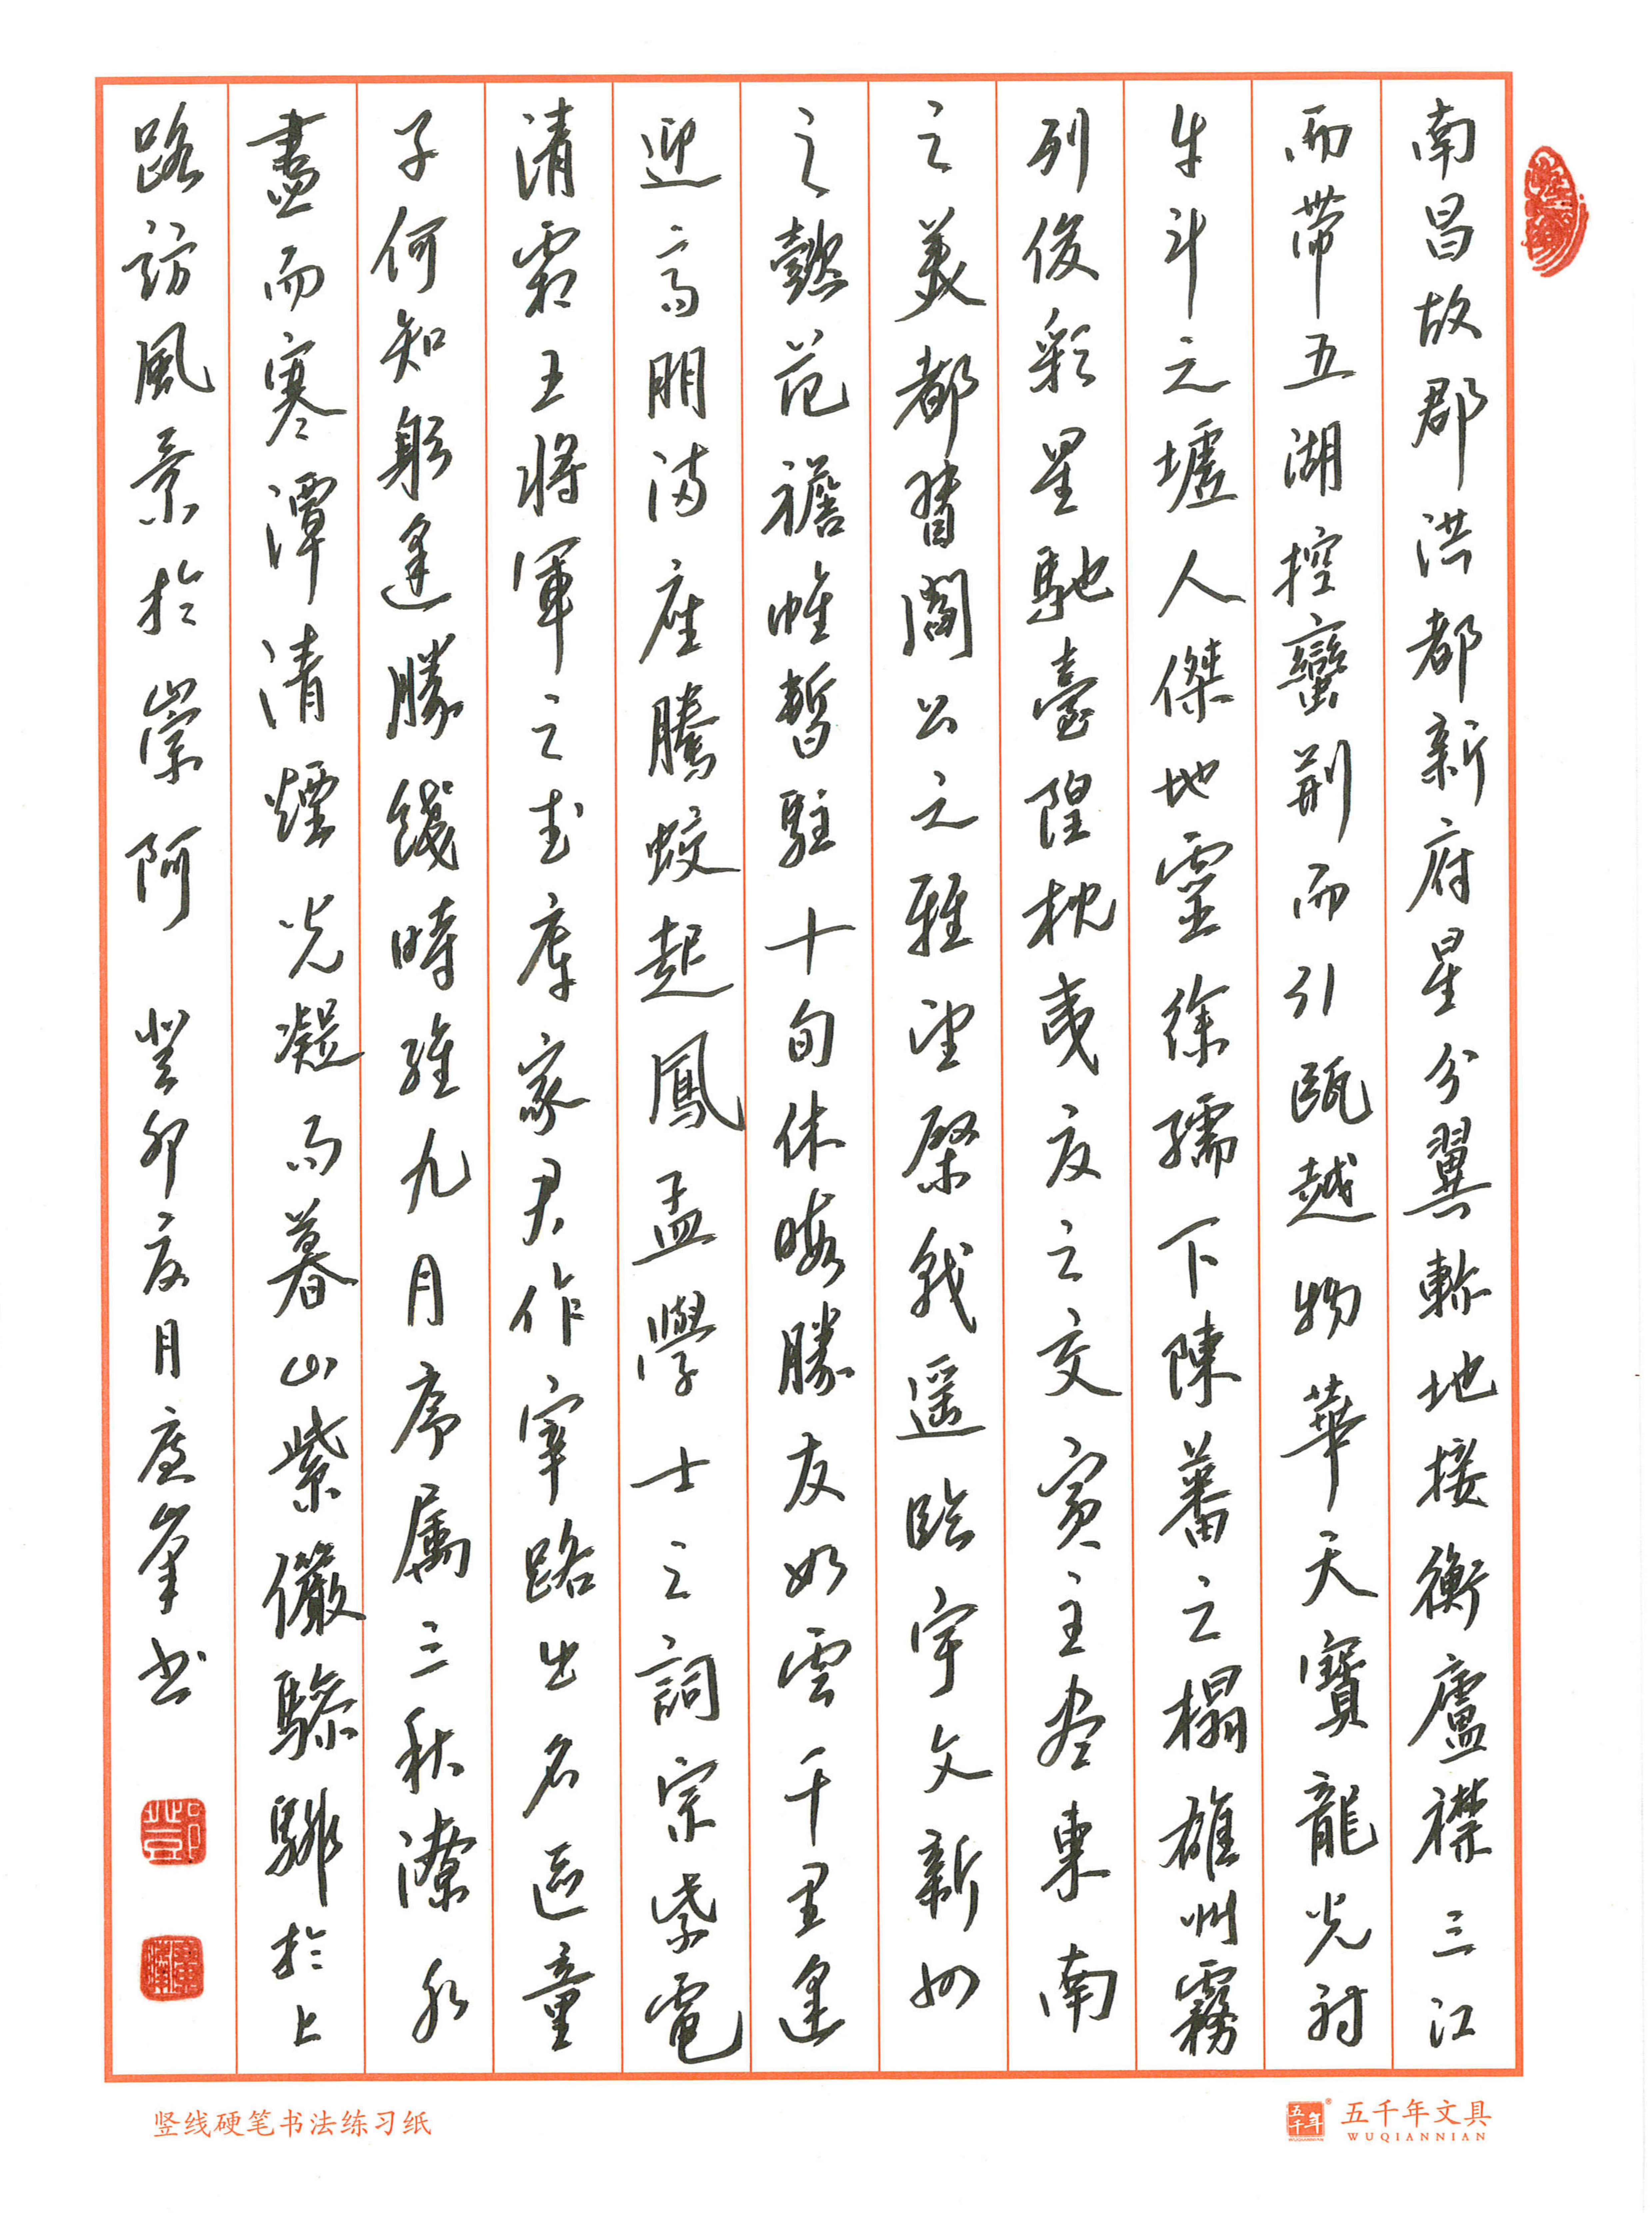 南昌故郡洪都新府星分翼軫地接衡廬襟三江
而帶五湖控蠻荆而引甌越物華天寶龍光射
牛斗之墟人傑地靈徐孺下陳蕃之榻雄州霧
列俊彩星馳臺隍枕夷夏之交賓主盡東南
之美都督閻公之雅望棨戟遥臨宇文新州
之懿范襜帷暫駐十旬休暇勝友如雲千里逢
迎高朋满座騰蛟起鳳孟學士之詞宗紫電
清霜王將軍之武庫家君作宰路出名區童
子何知躬逢勝餞時維九月序屬三秋潦水
盡而寒潭清煙光凝而暮山紫儼驂騑於上
路訪風景於崇阿 癸卯夏月 峯书
竖线硬笔书法练习纸
五千年
五千年文具
WUQIANNIAN